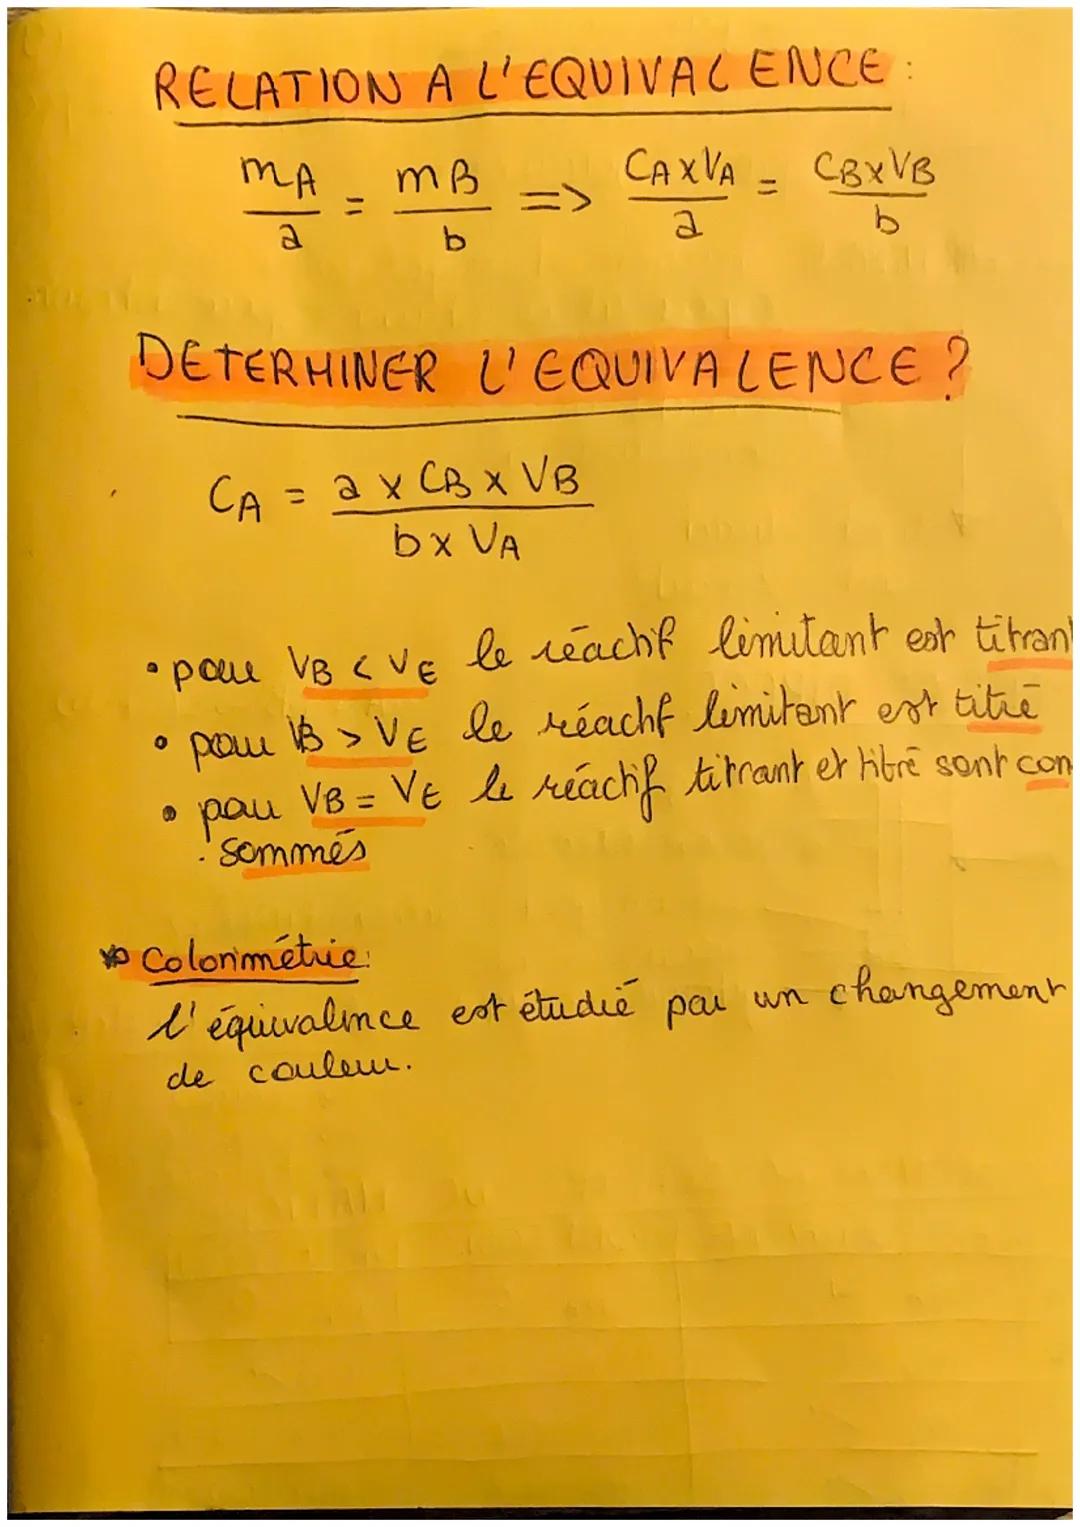 RELATION A L'EQUIVALENCE :
mA/a = mB/b => CAxVA/a = CBxVB/b
DETERMINER L'EQUIVALENCE ?
CA = a x CB x VB / b x VA
• pour VB < VE le réactif limitant est titrant
• pour VB > VE le réactif limitant est titré
• pour VB = VE le réactif titrant et titré sont con
sommés
Colorimétrie:
l'équivalence est étudié par un changement
de couleur.